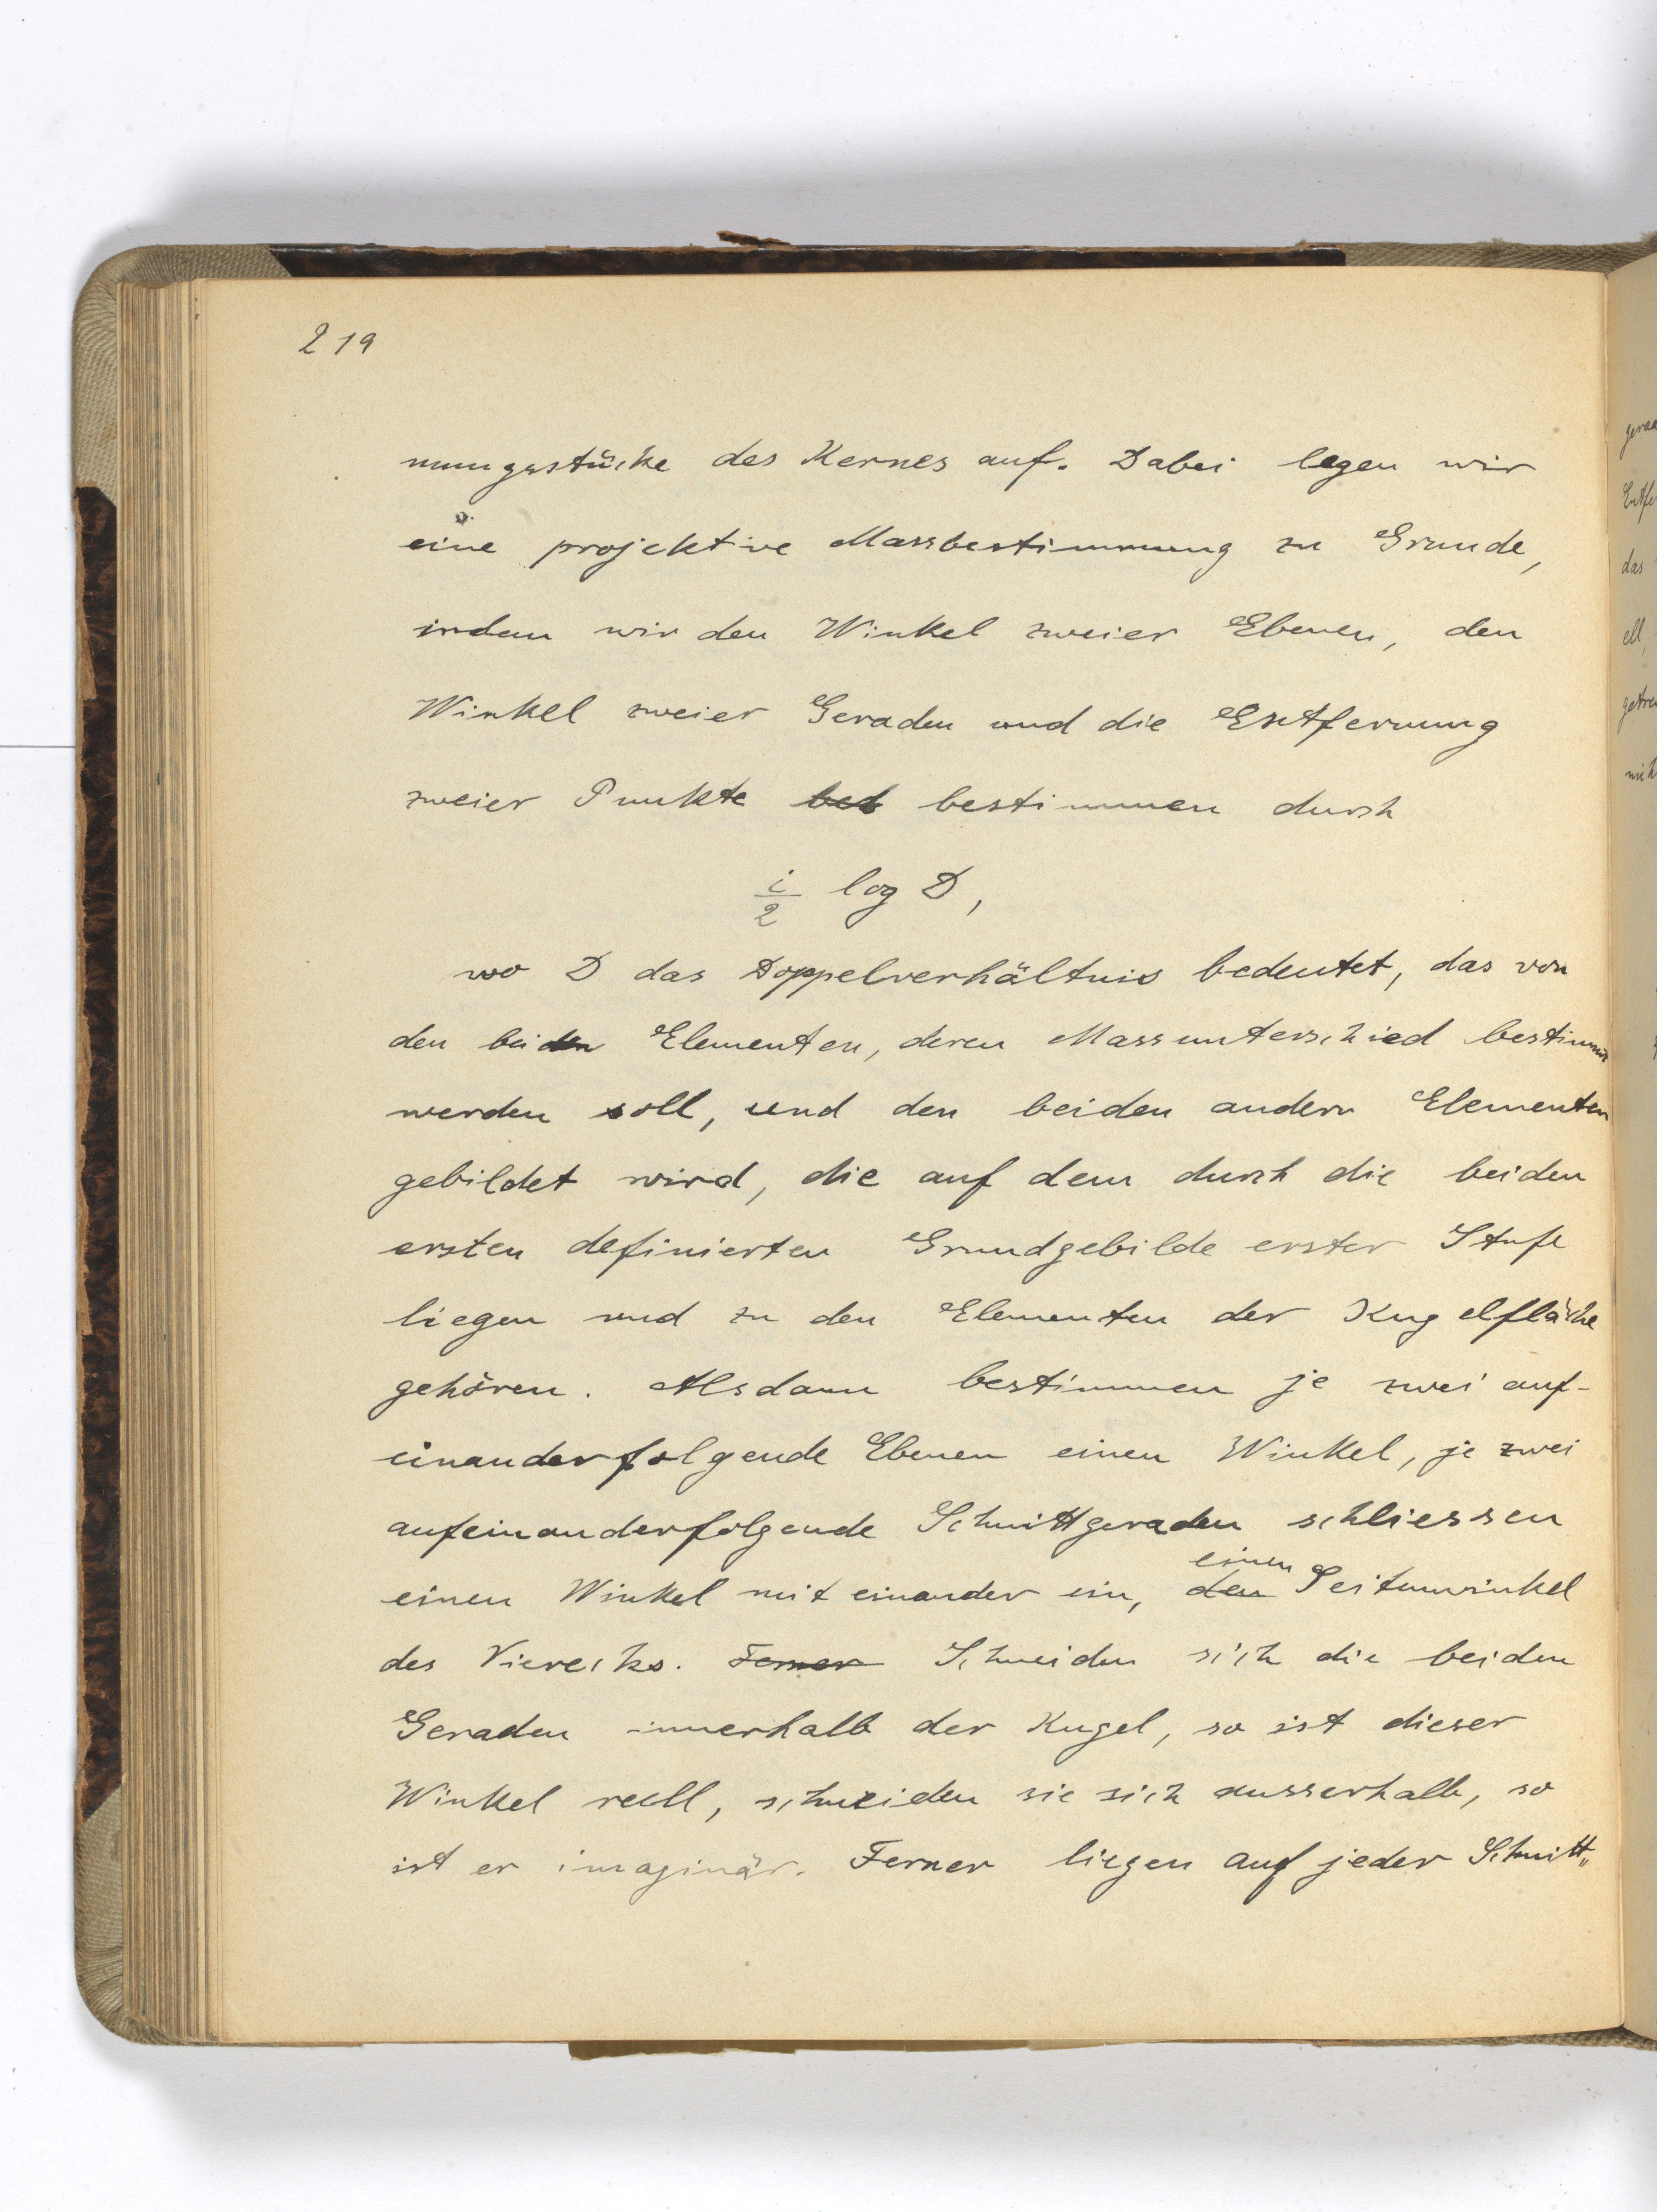 219
nungsstücke des Kernes auf. Dabei legen wir
eine projektive Massbestimmung zu Grunde,
indem wir den Winkel zweier Ebenen, den
Winkel zweier Geraden und die Entfernung
zweier Punkte bestimmen durch
i/2 log D,
wo D das Doppelverhältnis bedeutet, das von
den beiden Elementen, deren Massunterschied bestimmt
werden soll, und den beiden andern Elementen
gebildet wird, die auf dem durch die beiden
ersten definierten Grundgebilde erster Stufe
liegen und zu den Elementen der Kugelfläche
gehören. Alsdann bestimmen je zwei auf-
einanderfolgende Ebenen einen Winkel, je zwei
aufeinanderfolgende Schnittgeraden schliessen
einen
einen Winkel mit einander ein, den Seitenwinkel
des Vierecks. Ferner Schneiden sich die beiden
Geraden innerhalb der Kugel, so ist dieser
Winkel reell, schneiden sie sich ausserhalb, so
ist er imaginär. Ferner liegen auf jeder Schnitt„
gera
Entfe
das
ell,
getre